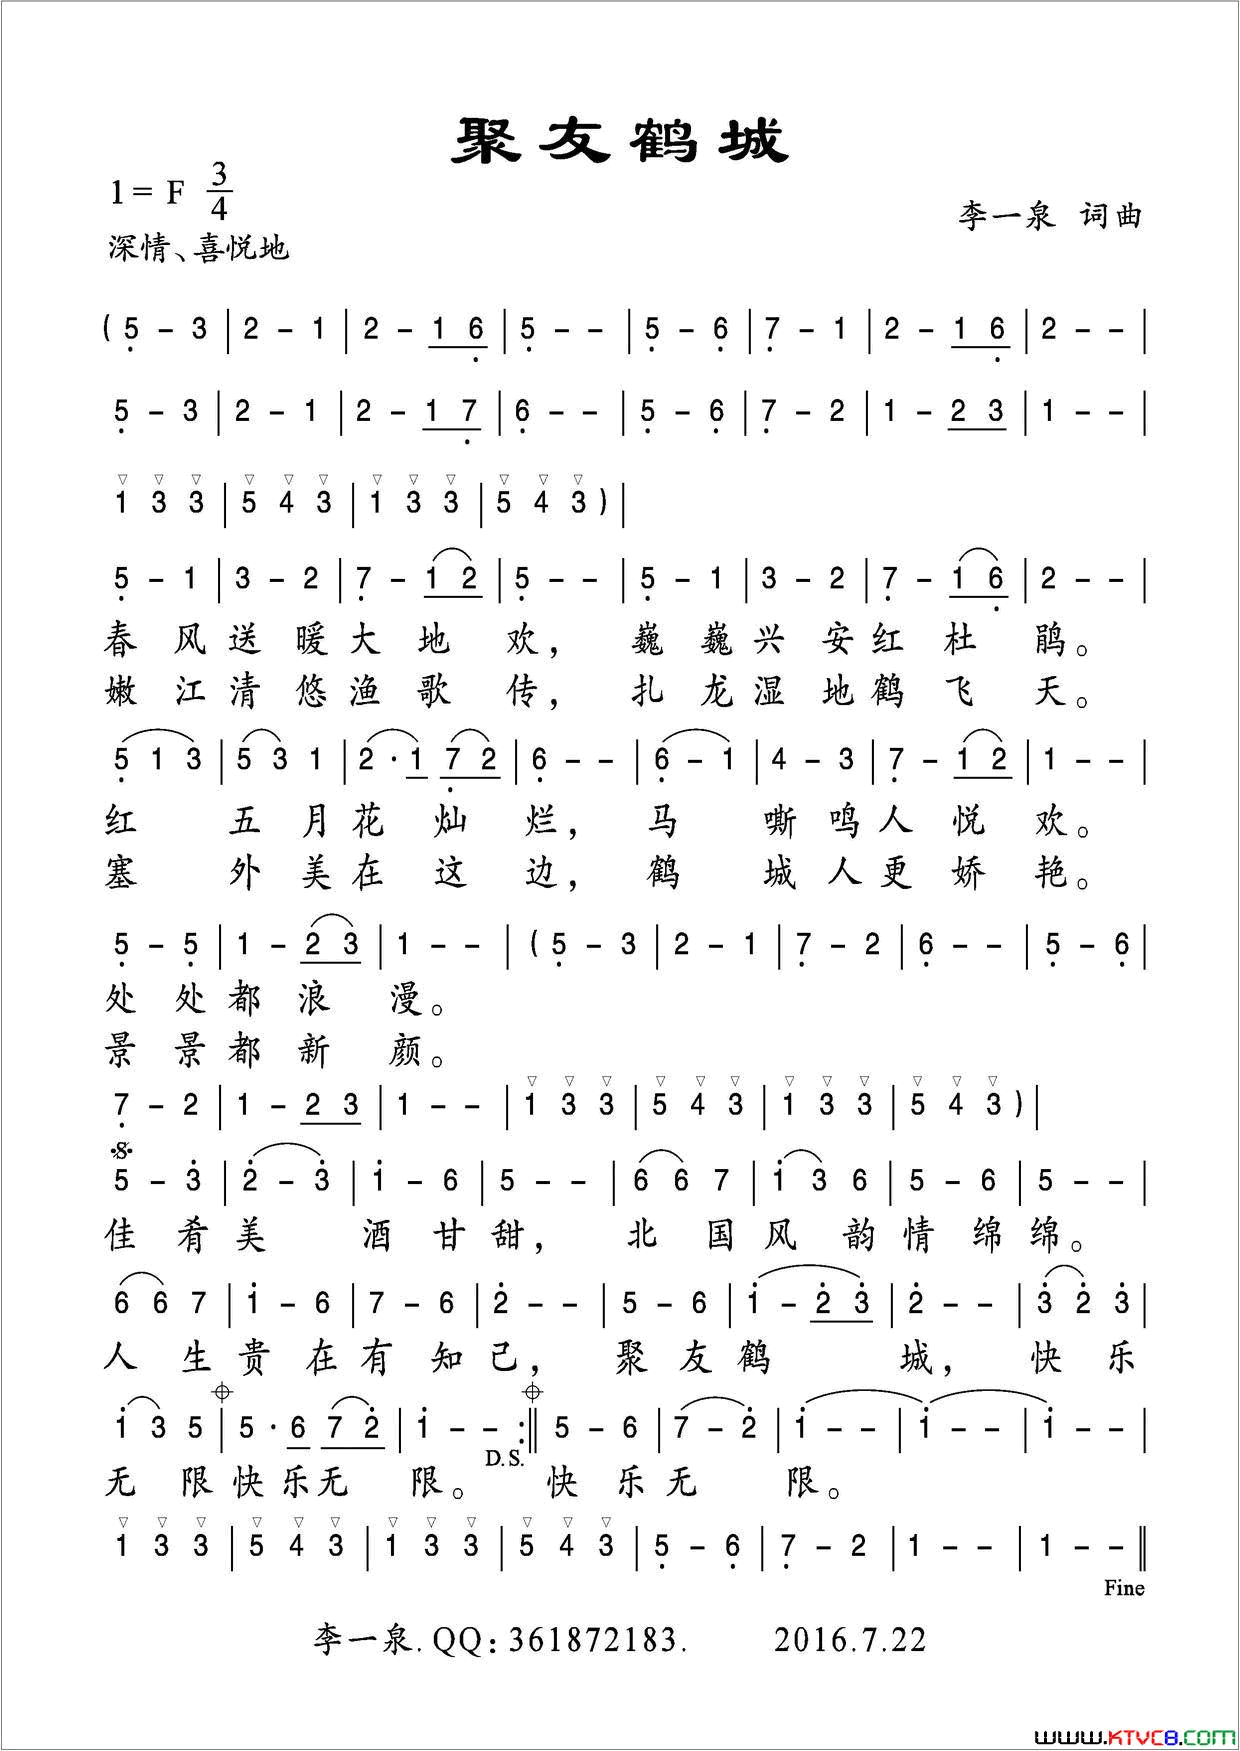 聚友鹤城
1= F 3/4
李一泉 词曲
深情、喜悦地
( 5 – 3 | 2 – 1 | 2 – 1 6 | 5 – – | 5 – 6 | 7 – 1 | 2 – 1 6 | 2 – – |
5 – 3 | 2 – 1 | 2 – 1 7 | 6 – – | 5 – 6 | 7 – 2 | 1 – 2 3 | 1 – – |
1 3 3 | 5 4 3 | 1 3 3 | 5 4 3 ) |
5 – 1 | 3 – 2 | 7 – 1 2 | 5 – – | 5 – 1 | 3 – 2 | 7 – 1 6 | 2 – – |
春风送暖大地欢，巍巍兴安红杜鹃。
嫩江清悠渔歌传，扎龙湿地鹤飞天。
5 1 3 | 5 3 1 | 2 · 1 7 2 | 6 – – | 6 – 1 | 4 – 3 | 7 – 1 2 | 1 – – |
红五月花灿烂，马嘶鸣人悦欢。
塞外美在这边，鹤城人更娇艳。
5 – 5 | 1 – 2 3 | 1 – – | ( 5 – 3 | 2 – 1 | 7 – 2 | 6 – – | 5 – 6 |
处处都浪漫。
景景都新颜。
7 – 2 | 1 – 2 3 | 1 – – | 1 3 3 | 5 4 3 | 1 3 3 | 5 4 3 ) |
5 – 3 | 2 – 3 | 1 – 6 | 5 – – | 6 6 7 | 1 3 6 | 5 – 6 | 5 – – |
佳肴美酒甘甜，北国风韵情绵绵。
6 6 7 | 1 – 6 | 7 – 6 | 2 – – | 5 – 6 | 1 – 2 3 | 2 – – | 3 2 3 |
人生贵在有知己，聚友鹤城，快乐
1 3 5 | 5 · 6 7 2 | 1 – – :‖ 5 – 6 | 7 – 2 | 1 – – | 1 – – | 1 – – |
D.S.
无限快乐无限。快乐无限。
1 3 3 | 5 4 3 | 1 3 3 | 5 4 3 | 5 – 6 | 7 – 2 | 1 – – | 1 – – ‖
Fine
李一泉.QQ:361872183. 2016.7.22
www.KTVC8.com